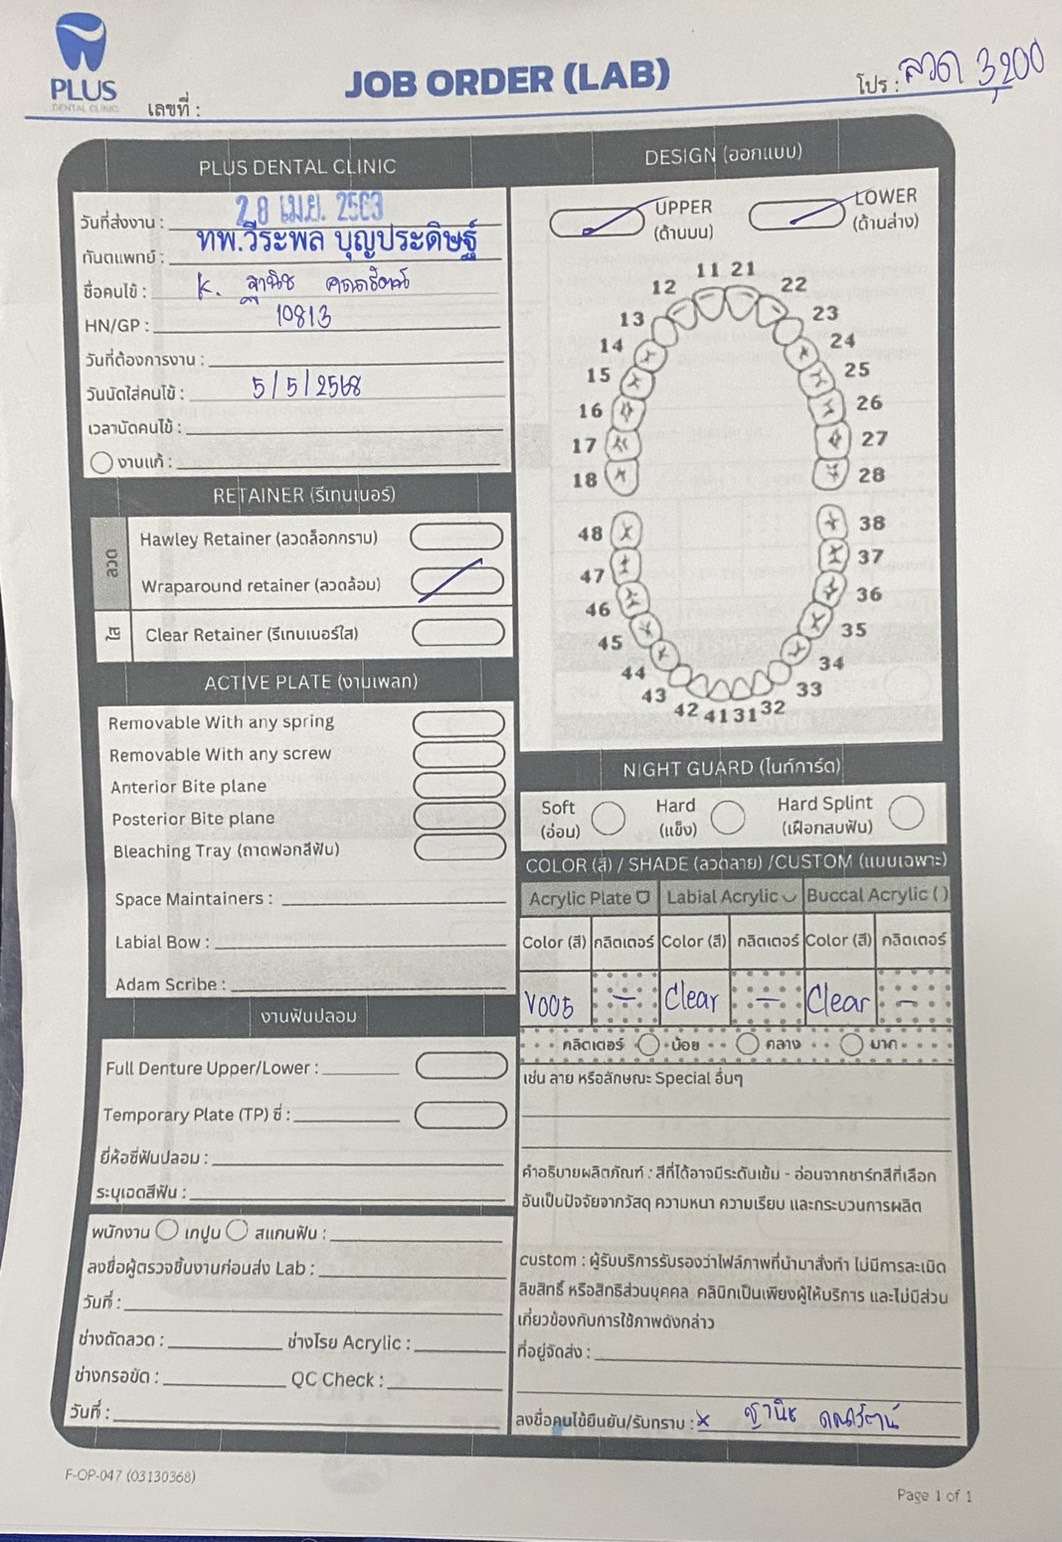 PLUS
DENTAL CLINIC
JOB ORDER (LAB)
เลขที่ :
โปร : ลวด 3,200
PLUS DENTAL CLINIC
วันที่ส่งงาน : 28 เม.ย.
ทันตแพทย์ : ทพ.วีระพล บุญประดิษฐ์
ชื่อคนไข้ : K. ฐานิช
HN/GP : 10813
วันที่ต้องการงาน :
วันนัดใส่คนไข้ : 5/5/2568
เวลานัดคนไข้ :
งานแก้ :
RETAINER (รีเทนเนอร์)
ลวด
Hawley Retainer (ลวดล็อกกราม)
Wraparound retainer (ลวดล้อม)
ใส
Clear Retainer (รีเทนเนอร์ใส)
ACTIVE PLATE (งานเพลท)
Removable With any spring
Removable With any screw
Anterior Bite plane
Posterior Bite plane
Bleaching Tray (ถาดฟอกสีฟัน)
Space Maintainers :
Labial Bow :
Adam Scribe :
งานฟันปลอม
Full Denture Upper/Lower :
Temporary Plate (TP) ซี่ :
ยี่ห้อซี่ฟันปลอม :
ระบุเฉดสีฟัน :
พนักงาน เทปูน สแกนฟัน :
ลงชื่อผู้ตรวจชิ้นงานก่อนส่ง Lab :
วันที่ :
ช่างดัดลวด : ช่างโรย Acrylic :
ช่างกรอขัด : QC Check :
วันที่ :
DESIGN (ออกแบบ)
UPPER
(ด้านบน)
LOWER
(ด้านล่าง)
11 21
12 22
13 23
14 24
15 25
16 26
17 27
18 28
48 38
47 37
46 36
45 35
44 34
43 33
42 41 31 32
NIGHT GUARD (ไนท์การ์ด)
Soft
(อ่อน)
Hard
(แข็ง)
Hard Splint
(เฝือกสบฟัน)
COLOR (สี) / SHADE (ลวดลาย) /CUSTOM (แบบเฉพาะ)
Acrylic Plate Labial Acrylic Buccal Acrylic ( )
Color (สี) กลิตเตอร์ Color (สี) กลิตเตอร์ Color (สี) กลิตเตอร์
V005 - Clear - Clear -
กลิตเตอร์ น้อย กลาง มาก
เช่น ลาย หรือลักษณะ Special อื่นๆ
คำอธิบายผลิตภัณฑ์ : สีที่ได้อาจมีระดับเข้ม - อ่อนจากชาร์ทสีที่เลือก
อันเป็นปัจจัยจากวัสดุ ความหนา ความเรียบ และกระบวนการผลิต
custom : ผู้รับบริการรับรองว่าไฟล์ภาพที่นำมาสั่งทำ ไม่มีการละเมิด
ลิขสิทธิ์ หรือสิทธิส่วนบุคคล คลินิกเป็นเพียงผู้ให้บริการ และไม่มีส่วน
เกี่ยวข้องกับการใช้ภาพดังกล่าว
ที่อยู่จัดส่ง :
ลงชื่อคนไข้ยืนยัน/รับทราบ : x ฐานิช
F-OP-047 (03130368)
Page 1 of 1